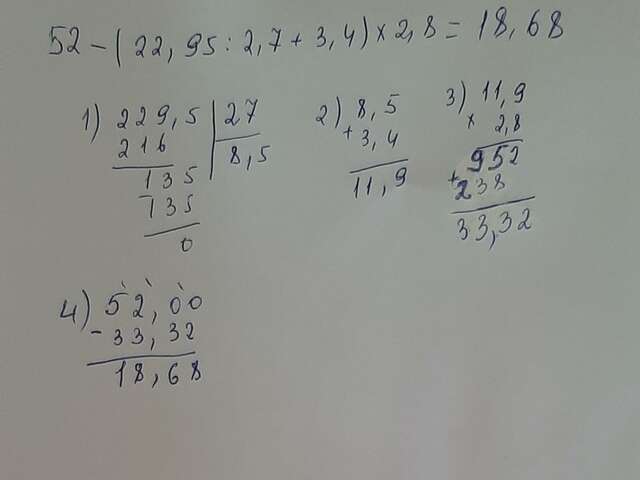 52 - (22,95 : 2,7 + 3,4) × 2,8 = 18,68
1) 229,5 | 27
216 | 8,5
135
135
0
2) 8,5
+ 3,4
11,9
3) 11,9
× 2,8
952
+ 238
33,32
4) 52,00
- 33,32
18,68